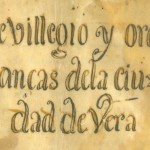 evillegio y ord
ancas dela ciu
dad de Vera